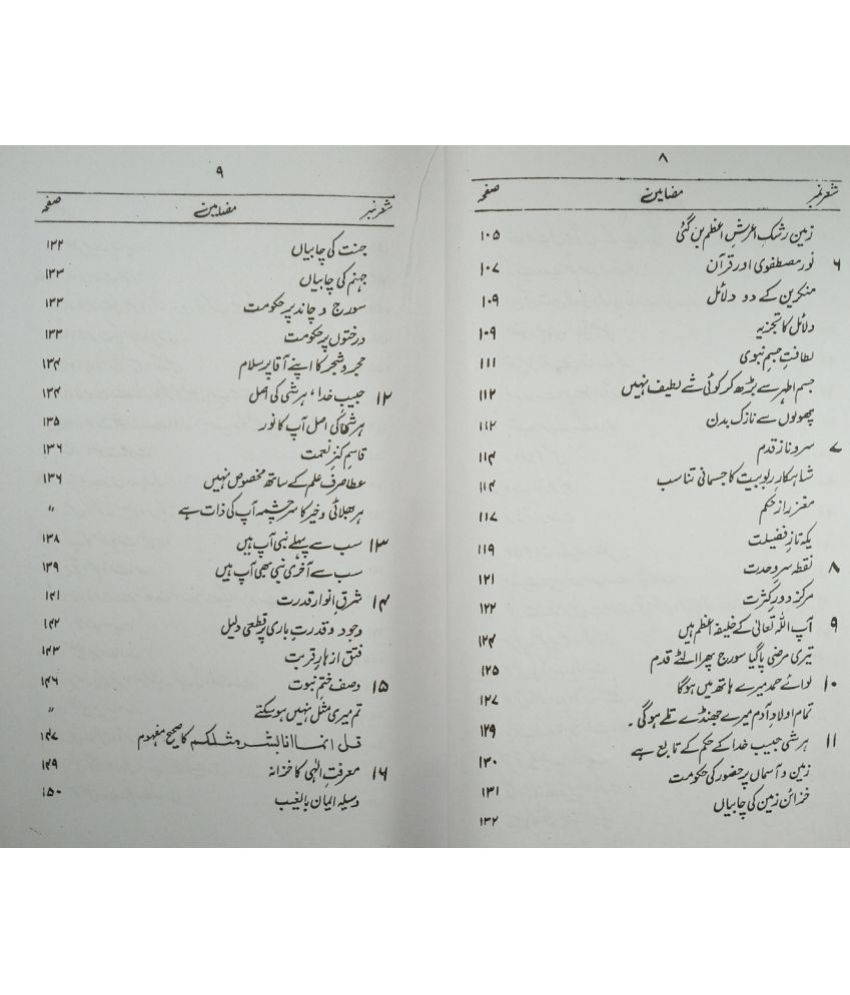 ۸
شعر نمبر مضامین صفحہ
زمین رشک عرش اعظم بن گئی ۱۰۵
۶ نور مصطفوی اور قرآن ۱۰۷
منکرین کے دو دلائل ۱۰۹
دلائل کا تجزیہ ۱۰۹
لطافتِ جسمِ نبوی ۱۱۱
جسم اطہر سے بڑھ کر کوئی شے لطیف نہیں ۱۱۲
پھولوں سے نازک بدن ۱۱۲
۷ سرو ناز قدم ۱۱۴
شاہکار ربوبیت کا جسمانی تناسب ۱۱۴
مغز راز حکم ۱۱۷
یکہ تاز فضیلت ۱۱۹
۸ نقطہ سر وحدت ۱۲۱
مرکز دور کثرت ۱۲۲
۹ آپ اللہ تعالیٰ کے خلیفہ اعظم ہیں ۱۲۴
تیری مرضی پا گیا سورج پھرا الٹے قدم ۱۲۵
۱۰ لوائے حمد میرے ہاتھ میں ہوگا ۱۲۷
تمام اولاد آدم میرے جھنڈے تلے ہوگی ۔ ۱۲۹
۱۱ ہر شی حبیب خدا کے حکم کے تابع ہے ۱۳۰
زمین و آسماں پر حضور کی حکومت ۱۳۱
خزائن زمین کی چابیاں ۱۳۲
۹
شعر نمبر مضامین صفحہ
جنت کی چابیاں ۱۲۲
جہنم کی چابیاں ۱۳۳
سورج و چاند پر حکومت ۱۳۳
درختوں پر حکومت ۱۳۳
حجر و شجر کا اپنے آقا پر سلام ۱۳۴
۱۲ حبیب خدا، ہر شی کی اصل ۱۳۴
ہر شئی کی اصل آپ کا نور ۱۳۵
قاسمِ کنزِ نعمت ۱۳۶
عطا صرف علم کے ساتھ مخصوص نہیں ۱۳۶
ہر بھلائی و خیر کا سرچشمہ آپ کی ذات ہے "
۱۳ سب سے پہلے نبی آپ ہیں ۱۳۸
سب سے آخری نبی بھی آپ ہیں ۱۳۹
۱۴ شرقِ انوار قدرت ۱۴۱
وجود و قدرتِ باری پر قطعی دلیل ۱۴۲
فتق ازہار قربت ۱۴۳
۱۵ وصف ختم نبوت ۱۴۶
تم میری مثل نہیں ہو سکتے "
قل انما انا بشر مثلکم کا صحیح مفہوم ۱۴۷
۱۶ معرفتِ الٰہی کا خزانہ ۱۴۹
وسیلہ ایمان بالغیب ۱۵۰